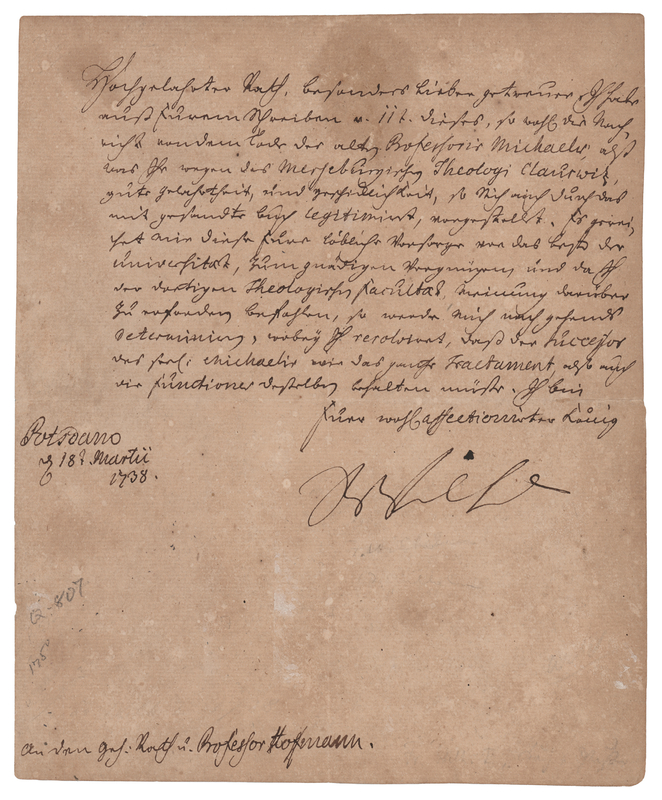 Hochgelahrter Rath, besonders lieber getreuer. Ich habe
auß Eurem Schreiben v. 11t. dieses, so wohl die Nach-
richt von dem Tode des alten Professoris Michaelis, alß
was Ihr wegen des Merseburgischen Theologi Clauswitz,
gute gelahrtheit, und geschicklichkeit, so sich auch durch das
mit gesandte buch legitimirt, vorgestellt. Es gerei-
chet mir diese Eure löbliche Vorsorge vor das beste der
Universitæt, zum gnädigen Vergnügen, und da Ich
der dortigen Theologischen Facultæt, Meinung darüber
zu erfordern befohlen, so werde mich nach gehends
determiniren, wobey Ich resolviret, daß der Successor
des seel: Michaelis wie das Tractament, also auch
die Functiones desselben behalten müste. Ich bin
Euer wohl affectionirter König
Potsdam
d 18t. Martii
1738.
Q-807
An den geh: Rath u. Professor Hofmann.